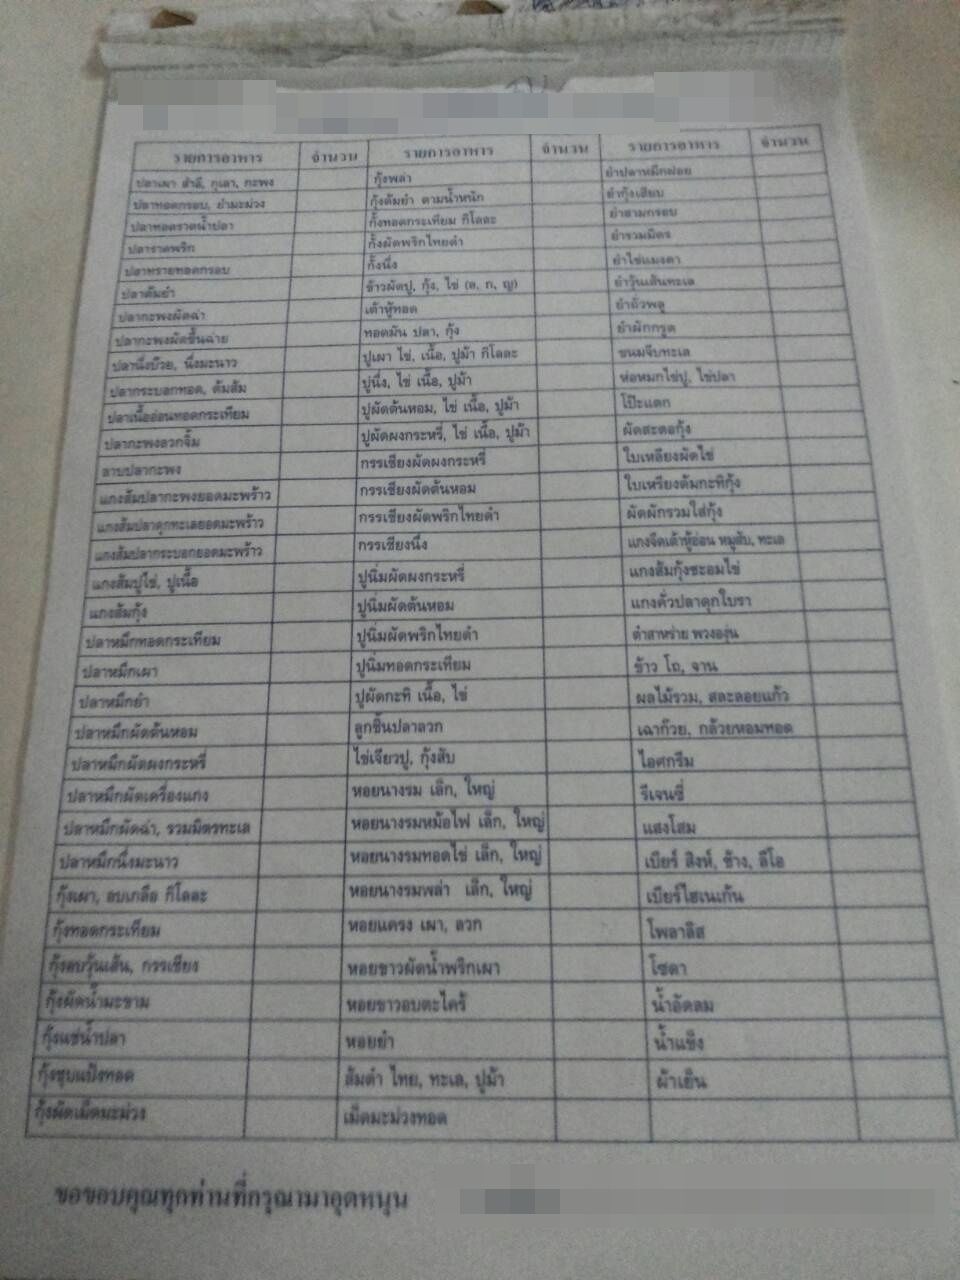 รายการอาหาร จำนวน รายการอาหาร จำนวน รายการอาหาร จำนวน
ปลาเผา สำลี, กุเลา, กะพง กุ้งพล่า ยำปลาหมึกฝอย
ปลาทอดกรอบ, ยำมะม่วง กุ้งต้มยำ ตามน้ำหนัก ยำกุ้งเสียบ
ปลาทอดราดน้ำปลา กั้งทอดกระเทียม กิโลละ ยำสามกรอบ
ปลาราดพริก กั้งผัดพริกไทยดำ ยำรวมมิตร
ปลาทรายทอดกรอบ กั้งนึ่ง ยำไข่แมงดา
ปลาต้มยำ ข้าวผัดปู, กุ้ง, ไข่ (ล, ก, ญ) ยำวุ้นเส้นทะเล
ปลากะพงผัดฉ่า เต้าหู้ทอด ยำถั่วพลู
ปลากะพงผัดขึ้นฉ่าย ทอดมัน ปลา, กุ้ง ยำผักกรูด
ปลานึ่งบ๊วย, นึ่งมะนาว ปูเผา ไข่, เนื้อ, ปูม้า กิโลละ ขนมจีบทะเล
ปลากระบอกทอด, ต้มส้ม ปูนึ่ง, ไข่ เนื้อ, ปูม้า ห่อหมกไข่ปู, ไข่ปลา
ปลาเนื้ออ่อนทอดกระเทียม ปูผัดต้นหอม, ไข่ เนื้อ, ปูม้า โป๊ะแตก
ปลากะพงลวกจิ้ม ปูผัดผงกระหรี่, ไข่ เนื้อ, ปูม้า ผัดสะตอกุ้ง
ลาบปลากะพง กรรเชียงผัดผงกระหรี่ ใบเหลียงผัดไข่
แกงส้มปลากะพงยอดมะพร้าว กรรเชียงผัดต้นหอม ใบเหรียงต้มกะทิกุ้ง
แกงส้มปลาดุกทะเลยอดมะพร้าว กรรเชียงผัดพริกไทยดำ ผัดผักรวมใส่กุ้ง
แกงส้มปลากระบอกยอดมะพร้าว กรรเชียงนึ่ง แกงจืดเต้าหู้อ่อน หมูสับ, ทะเล
แกงส้มปูไข่, ปูเนื้อ ปูนิ่มผัดผงกระหรี่ แกงส้มกุ้งชะอมไข่
แกงส้มกุ้ง ปูนิ่มผัดต้นหอม แกงคั่วปลาดุกใบรา
ปลาหมึกทอดกระเทียม ปูนิ่มผัดพริกไทยดำ ตำสาหร่าย พวงองุ่น
ปลาหมึกเผา ปูนิ่มทอดกระเทียม ข้าว โถ, จาน
ปลาหมึกยำ ปูผัดกะทิ เนื้อ, ไข่ ผลไม้รวม, สละลอยแก้ว
ปลาหมึกผัดต้นหอม ลูกชิ้นปลาลวก เฉาก๊วย, กล้วยหอมทอด
ปลาหมึกผัดผงกระหรี่ ไข่เจียวปู, กุ้งสับ ไอศกรีม
ปลาหมึกผัดเครื่องแกง หอยนางรม เล็ก, ใหญ่ รีเจนซี่
ปลาหมึกผัดฉ่า, รวมมิตรทะเล หอยนางรมหม้อไฟ เล็ก, ใหญ่ แสงโสม
ปลาหมึกนึ่งมะนาว หอยนางรมทอดไข่ เล็ก, ใหญ่ เบียร์ สิงห์, ช้าง, ลีโอ
กุ้งเผา, อบเกลือ กิโลละ หอยนางรมพล่า เล็ก, ใหญ่ เบียร์ไฮเนเก้น
กุ้งทอดกระเทียม หอยแครง เผา, ลวก โพลาลิส
กุ้งอบวุ้นเส้น, กรรเชียง หอยขาวผัดน้ำพริกเผา โซดา
กุ้งผัดน้ำมะขาม หอยขาวอบตะไคร้ น้ำอัดลม
กุ้งแช่น้ำปลา หอยยำ น้ำแข็ง
กุ้งชุบแป้งทอด ส้มตำ ไทย, ทะเล, ปูม้า ผ้าเย็น
กุ้งผัดเม็ดมะม่วง เม็ดมะม่วงทอด
ขอขอบคุณทุกท่านที่กรุณามาอุดหนุน